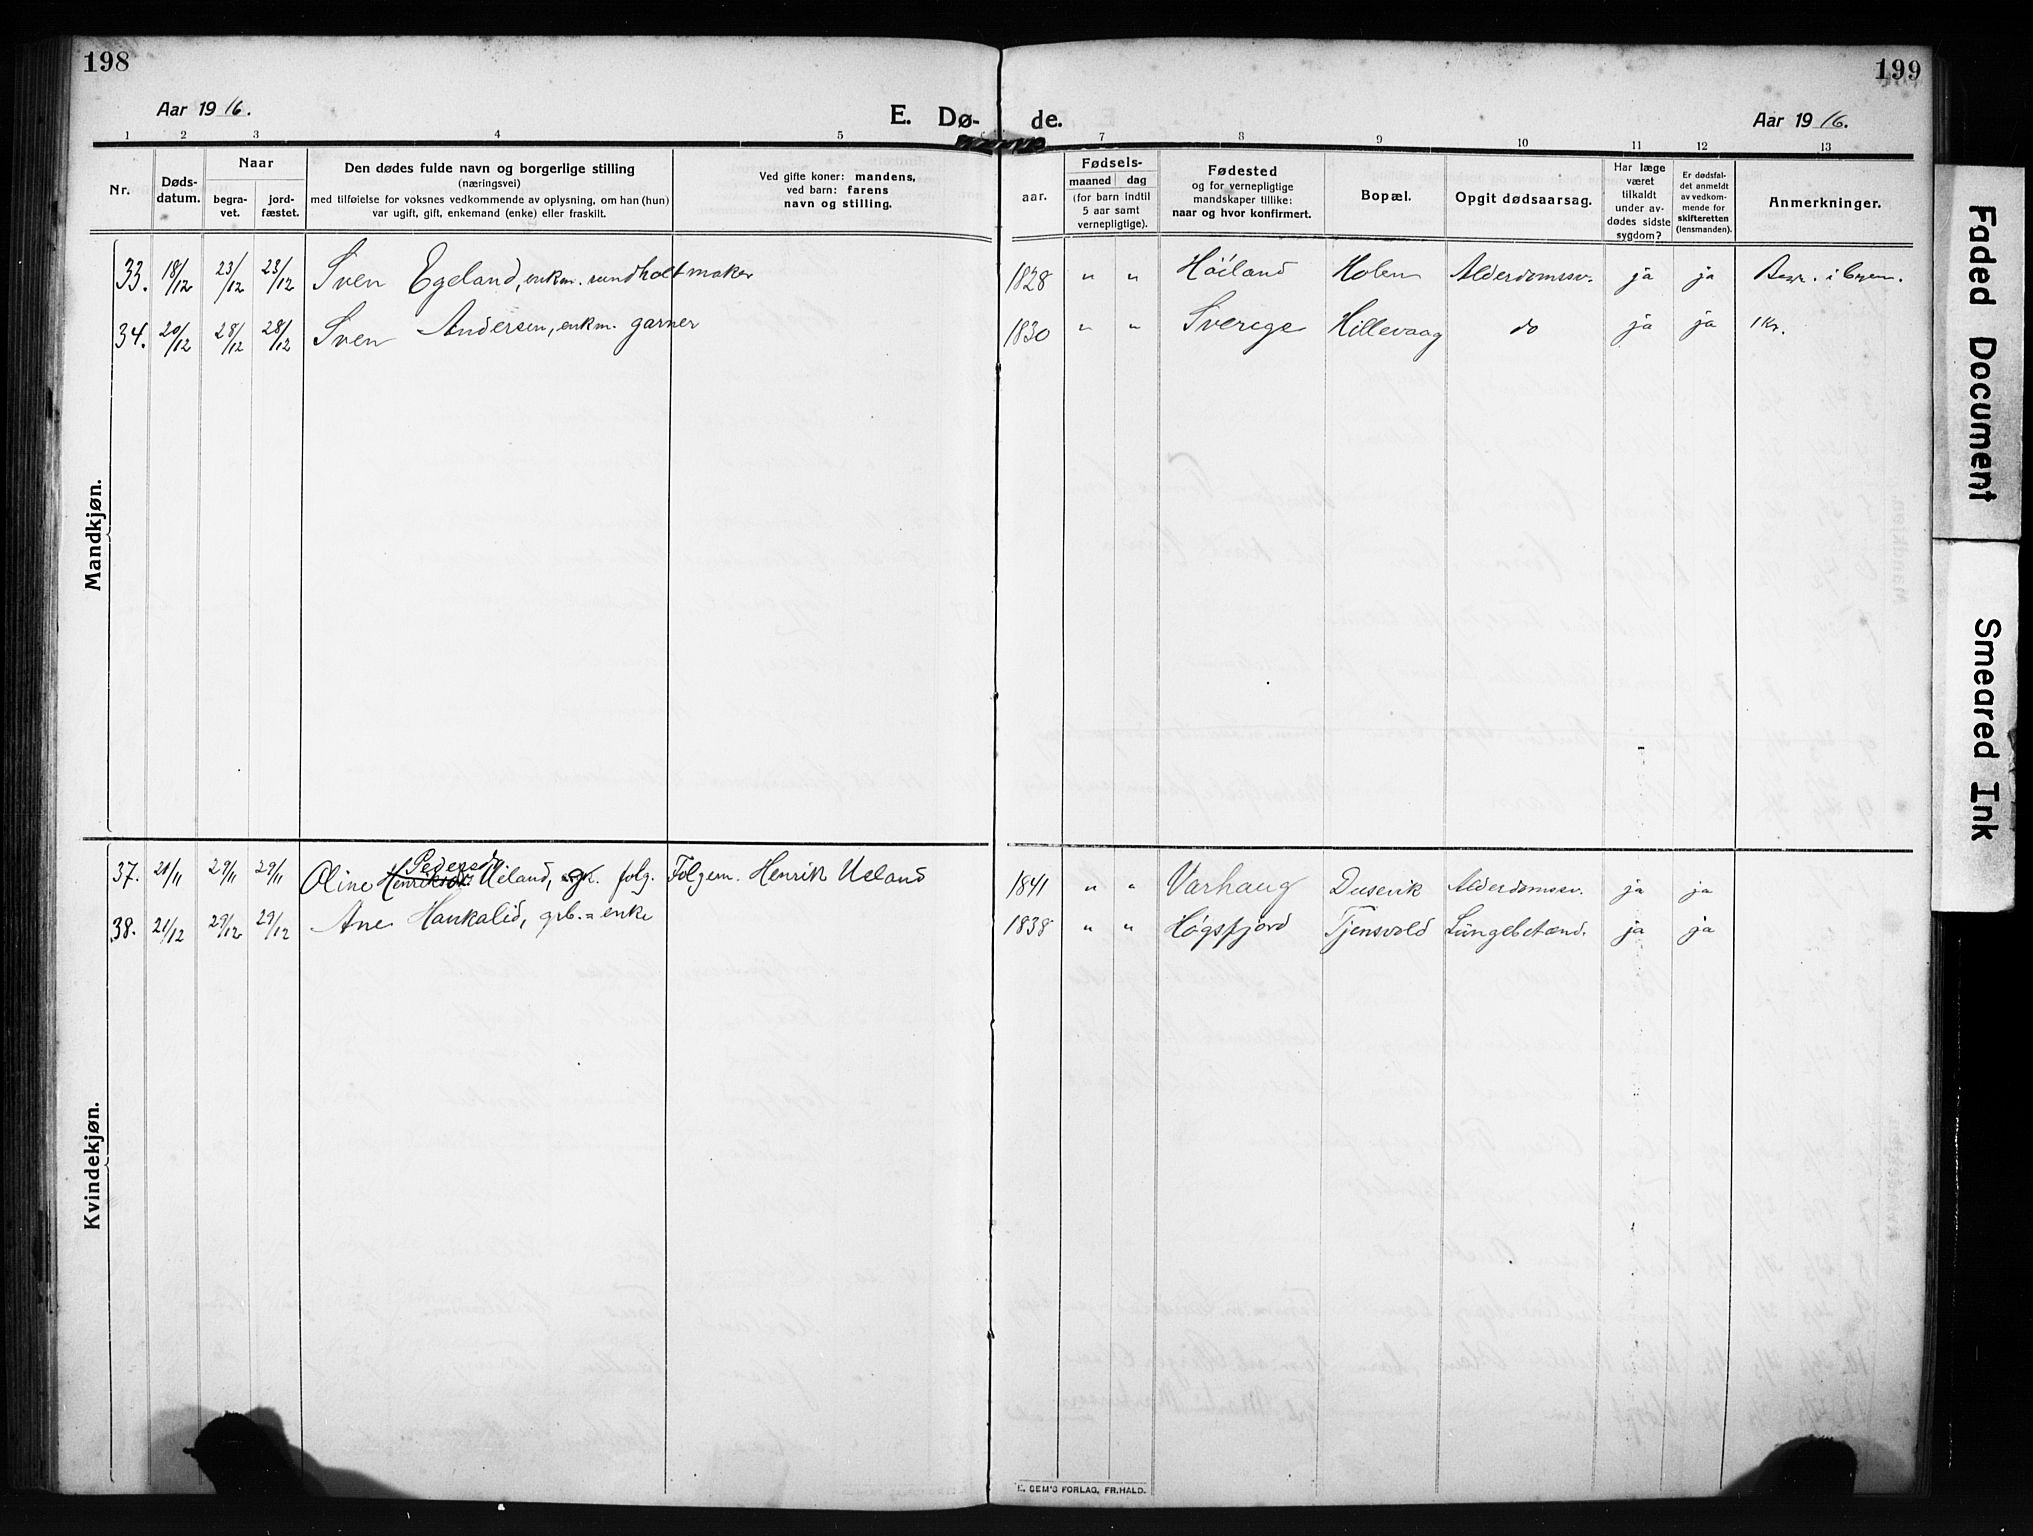 198
199
Aar 1916.
E. Dø-
de.
Aar 1916.
1 2 3 4 5 7 8 9 10 11 12 13
Nr.
Døds-
datum.
Naar
begra-
vet.
jord-
fæstet.
Den dødes fulde navn og borgerlige stilling
(næringsvei)
med tilføielse for voksnes vedkommende av oplysning, om han (hun)
var ugift, gift, enkemand (enke) eller fraskilt.
Ved gifte koner: mandens,
ved barn: farens
navn og stilling.
aar.
Fødsels-
maaned dag
(for barn indtil
5 aar samt
vernepligtige).
Fødested
og for vernepligtige
mandskaper tillike:
naar og hvor konfirmert.
Bopæl.
Opgit dødsaarsag.
Har læge
været
tilkaldt
under av-
dødes sidste
sygdom?
Er dødsfal-
det anmeldt
av vedkom-
mende for
skifteretten
(lensmanden).
Anmerkninger.
Mandkjøn.
33. 18/12 23/12 23/12 Sven Egeland, enkm. rundholtmaker 1828 " " Høiland Holen Alderdomssv. ja ja Begr. i byen.
34. 20/12 28/12 28/12 Sven Andersen, enkm. garner 1830 " " Sverige Hillevaag do ja ja 1 Kr.
Kvindekjøn.
Pedersdr.
37. 21/11 29/11 29/11 Oline Henriksdr. Ueland, gk. folg. Folgem. Henrik Ueland 1841 " " Varhaug Dusevik Alderdomssv. ja ja
38. 21/12 29/12 29/12 Ane Haukalid, grb.-enke 1838 " " Høgsfjord Tjensvold Lungebetænd. ja ja
E. SEM'S FORLAG, FR.HALD.
Faded Document
Smeared Ink